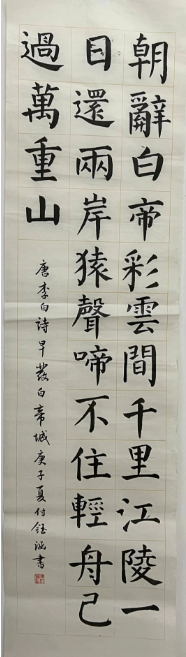 朝辭白帝彩雲間千里江陵一
日還兩岸猿聲啼不住輕舟已
過萬重山
唐李白詩早發白帝城庚子夏付鈺涵書